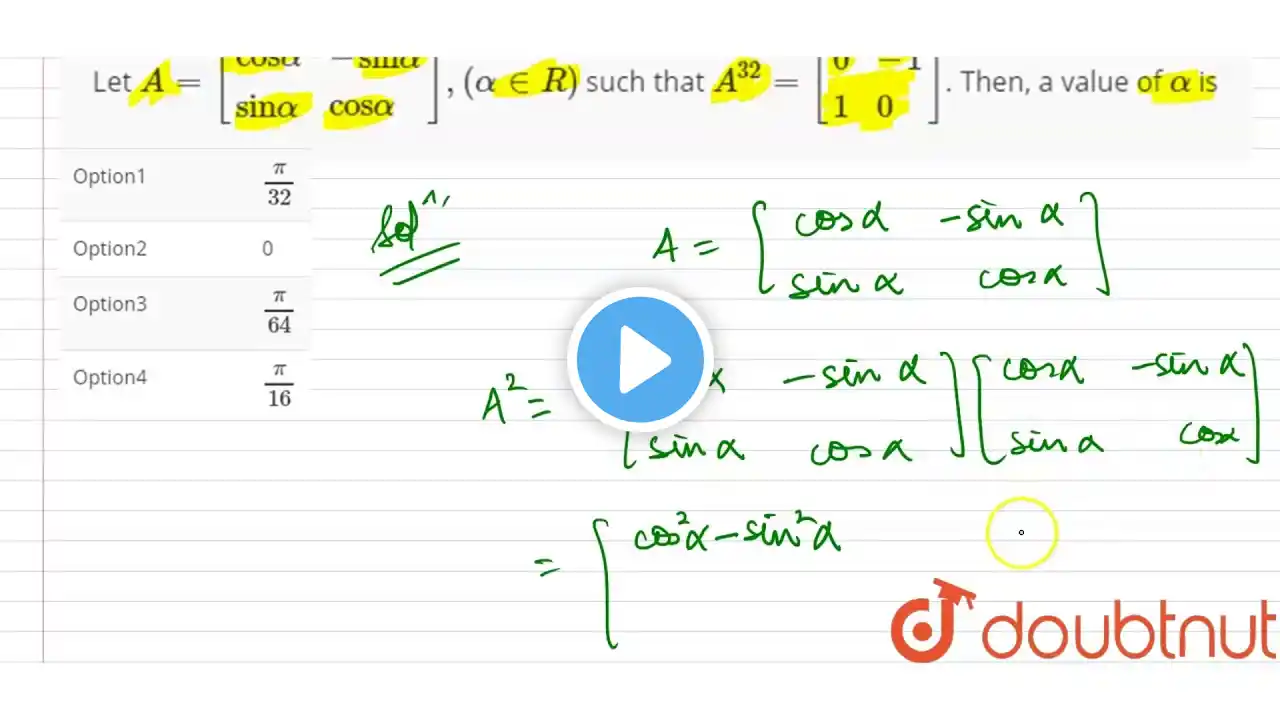 Let A = [cosα −sinα
sinα cosα], (α ∈ R) such that A^32 = [0 −1
1 0]. Then, a value of α is
Option1 π/32
Option2 0
Option3 π/64
Option4 π/16
Sol^n,
A = [cosα −sinα
sinα cosα]
A² = −sinα] [cosα −sinα
[sinα cosα] sinα cosα]
= [cos²α−sin²α
doubtnut